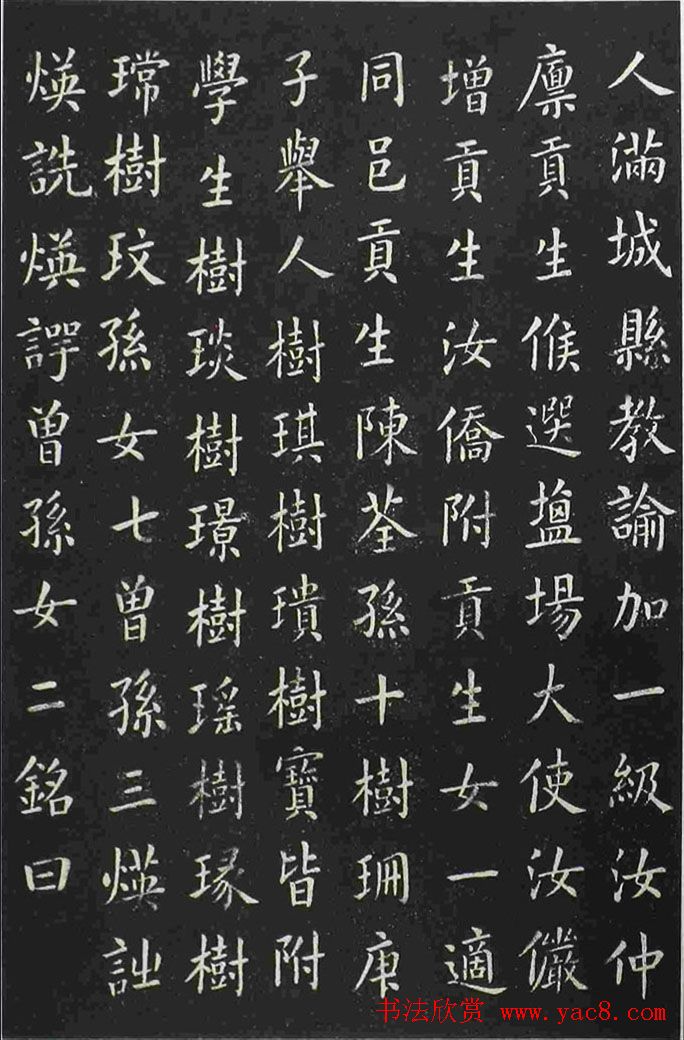 人滿城縣教諭加一級汝仲
廪貢生候選塩場大使汝儼
增貢生汝僑附貢生女一適
同邑貢生陳荃孫十樹珊庚
子舉人樹琪樹璝樹寶皆附
學生樹琰樹璟樹瑤樹瑑樹
瑺樹玟孫女七曾孫三煐詘
煐詵煐諤曾孫女二銘曰
书法欣赏 www.yac8.com